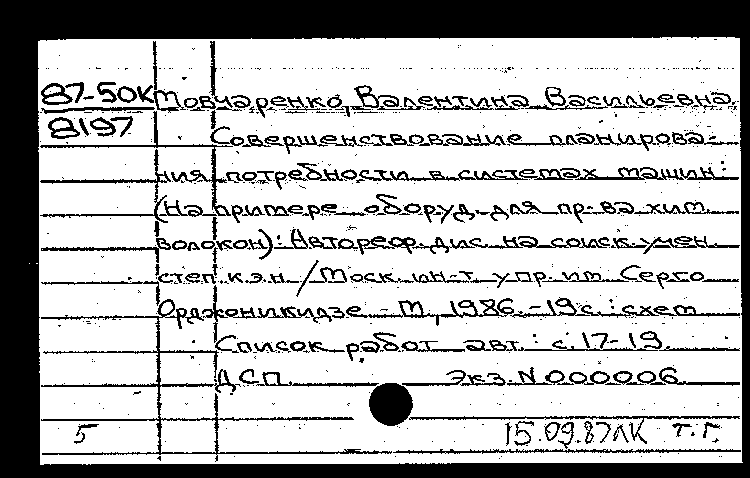 87-50К Мовчаренко, Валентина Васильевна
8197
Совершенствование планирова-
ния потребности в системах машин:
(На примере оборуд. для пр-ва хим.
волокон): Автореф. дис. на соиск. учен.
степ. к.э.н. / Моск. ин-т упр. им. Серго
Орджоникидзе. - М., 1986. - 19 с. : схем.
Список работ авт.: с. 17-19.
ДСП. Экз. N 000006.
5 15.09.87 ЛК т.г.